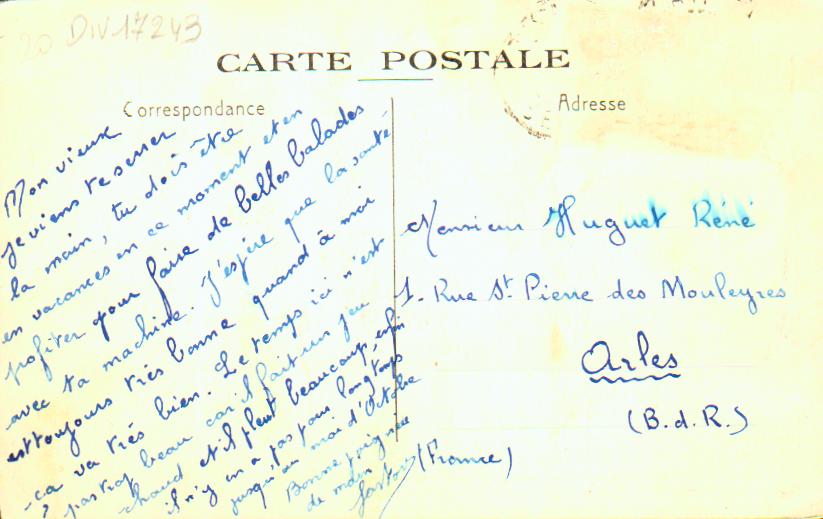 20 DIV17243
CARTE POSTALE
Correspondance
Adresse
Mon vieux
je viens te serrer
la main, tu dois être
en vacances en ce moment et en
profiter pour faire de belles balades
avec ta machine. J'espère que la santé
est toujours très bonne quand à moi
ça va très bien. Le temps ici n'est
pas trop beau car il fait un peu
chaud et il pleut beaucoup, enfin
il n'y en a pas pour longtemps
jusqu'au moi d'Octobre
Bonne poignée
de main
Monsieur Huguet Réné
1. Rue St Pierre des Mouleyres
Arles
(B.d.R.)
(France)